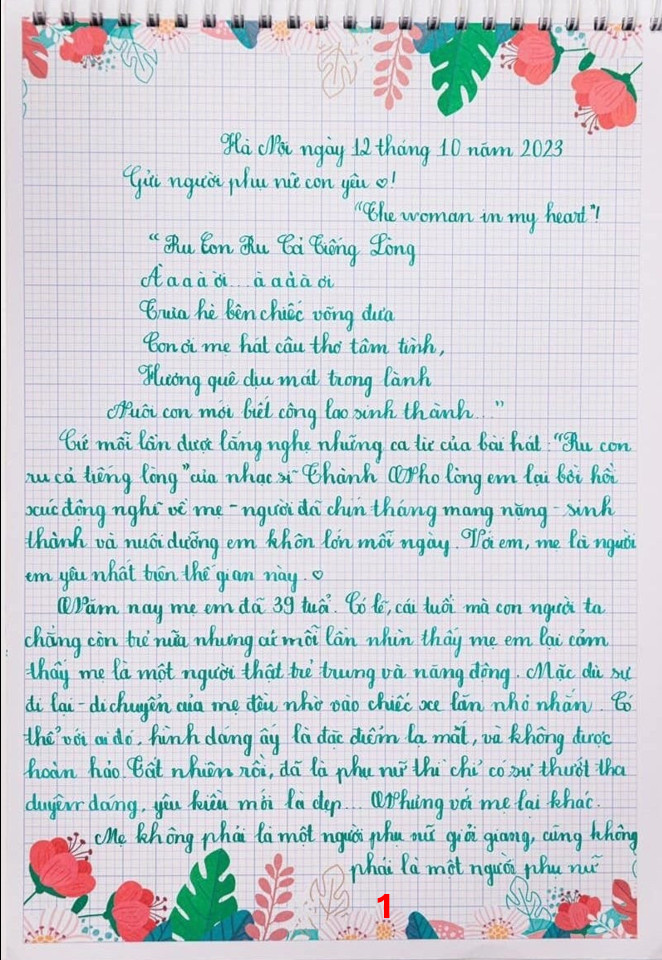 Hà Nội ngày 12 tháng 10 năm 2023
Gửi người phụ nữ con yêu ♡!
"The woman in my heart"!
"Ru Con Ru Cả Tiếng Lòng
À a a à ơi... à a à à ơi
Trưa hè bên chiếc võng đưa
Con ơi mẹ hát câu thơ tâm tình,
Hương quê dịu mát trong lành
Nuôi con mới biết công lao sinh thành..."
Cứ mỗi lần được lắng nghe những ca từ của bài hát: "Ru con
ru cả tiếng lòng" của nhạc sĩ Thành Nho lòng em lại bồi hồi
xúc động nghĩ về mẹ - người đã chín tháng mang nặng - sinh
thành và nuôi dưỡng em khôn lớn mỗi ngày. Với em, mẹ là người
em yêu nhất trên thế gian này. ♡
Năm nay mẹ em đã 39 tuổi. Có lẽ, cái tuổi mà con người ta
chẳng còn trẻ nữa nhưng cứ mỗi lần nhìn thấy mẹ em lại cảm
thấy mẹ là một người thật trẻ trung và năng động. Mặc dù sự
đi lại - di chuyển của mẹ đều nhờ vào chiếc xe lăn nhỏ nhắn. Có
thể với ai đó, hình dáng ấy là đặc điểm lạ mắt, và không được
hoàn hảo. Tất nhiên rồi, đã là phụ nữ thì chỉ có sự thướt tha
duyên dáng, yêu kiều mới là đẹp... Nhưng với mẹ lại khác.
Mẹ không phải là một người phụ nữ giỏi giang, cũng không
phải là một người phụ nữ
1